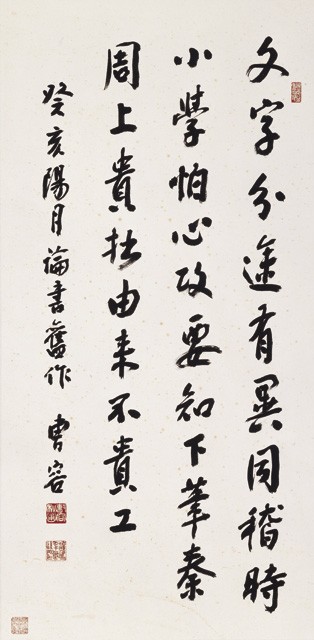 文字分途有異同稽時
小學怕心攻要知下筆秦
周上貴拙由來不貴工
癸亥陽月論書舊作 曹容